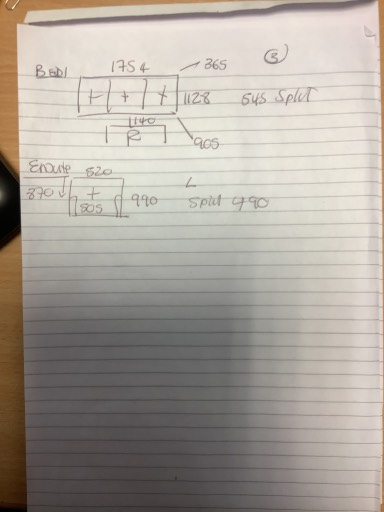 3
1754 365
BED1
+ + + 1128 545 Split
1140
R
905
Ensuite 520
870 + 990 L Split 490
505